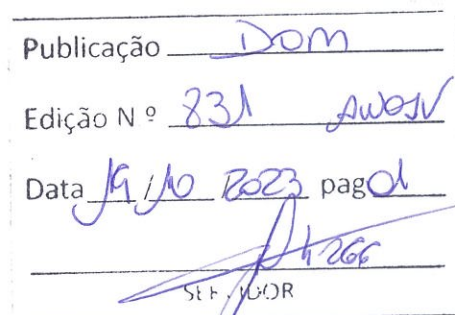 Publicação DOM
Edição Nº 831
Data 19/10 2023 pag 01
4266
SERVIDOR